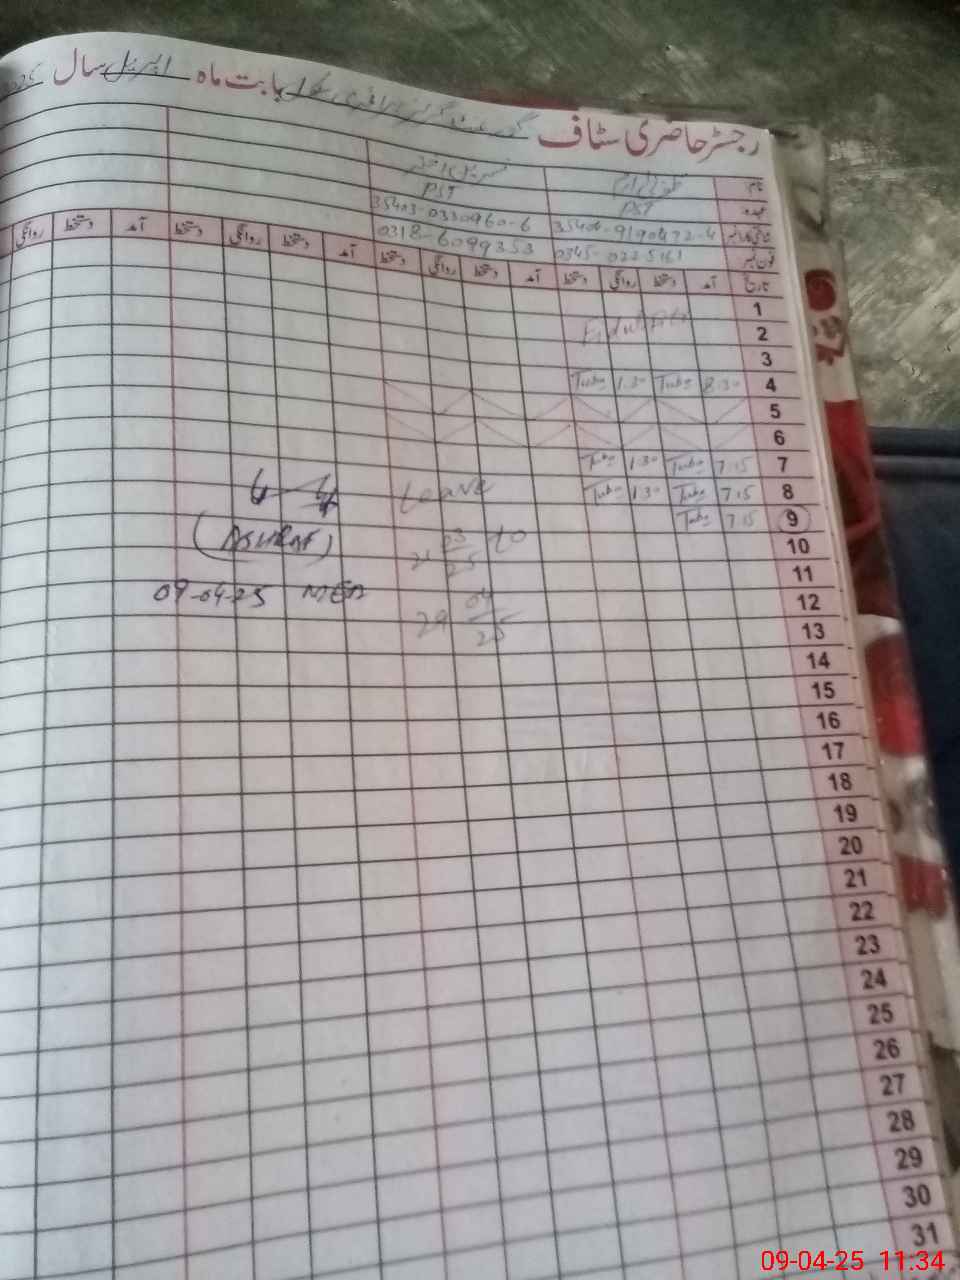 رجسٹر حاضری سٹاف گورنمنٹ گرلز پرائمری سکول بابت ماہ اپریل سال 2025
نام
عہدہ PST PST
شناختی کارڈ نمبر 35404-9190472-4 35403-0330960-6
فون نمبر 0345-0225161 0318-6099353
تاریخ آمد دستخط روانگی دستخط آمد دستخط روانگی دستخط آمد دستخط روانگی دستخط آمد دستخط روانگی
1
2 Eid ul Fitr
3
4 8:30 1:30
5
6
7 7:15 1:30
8 7:15 1:30 Leave
9 7:15
10 21 03/25 to (ASHRAF)
11
12 29 04/25 09-04-25 MEA
13
14
15
16
17
18
19
20
21
22
23
24
25
26
27
28
29
30
31
09-04-25 11:34